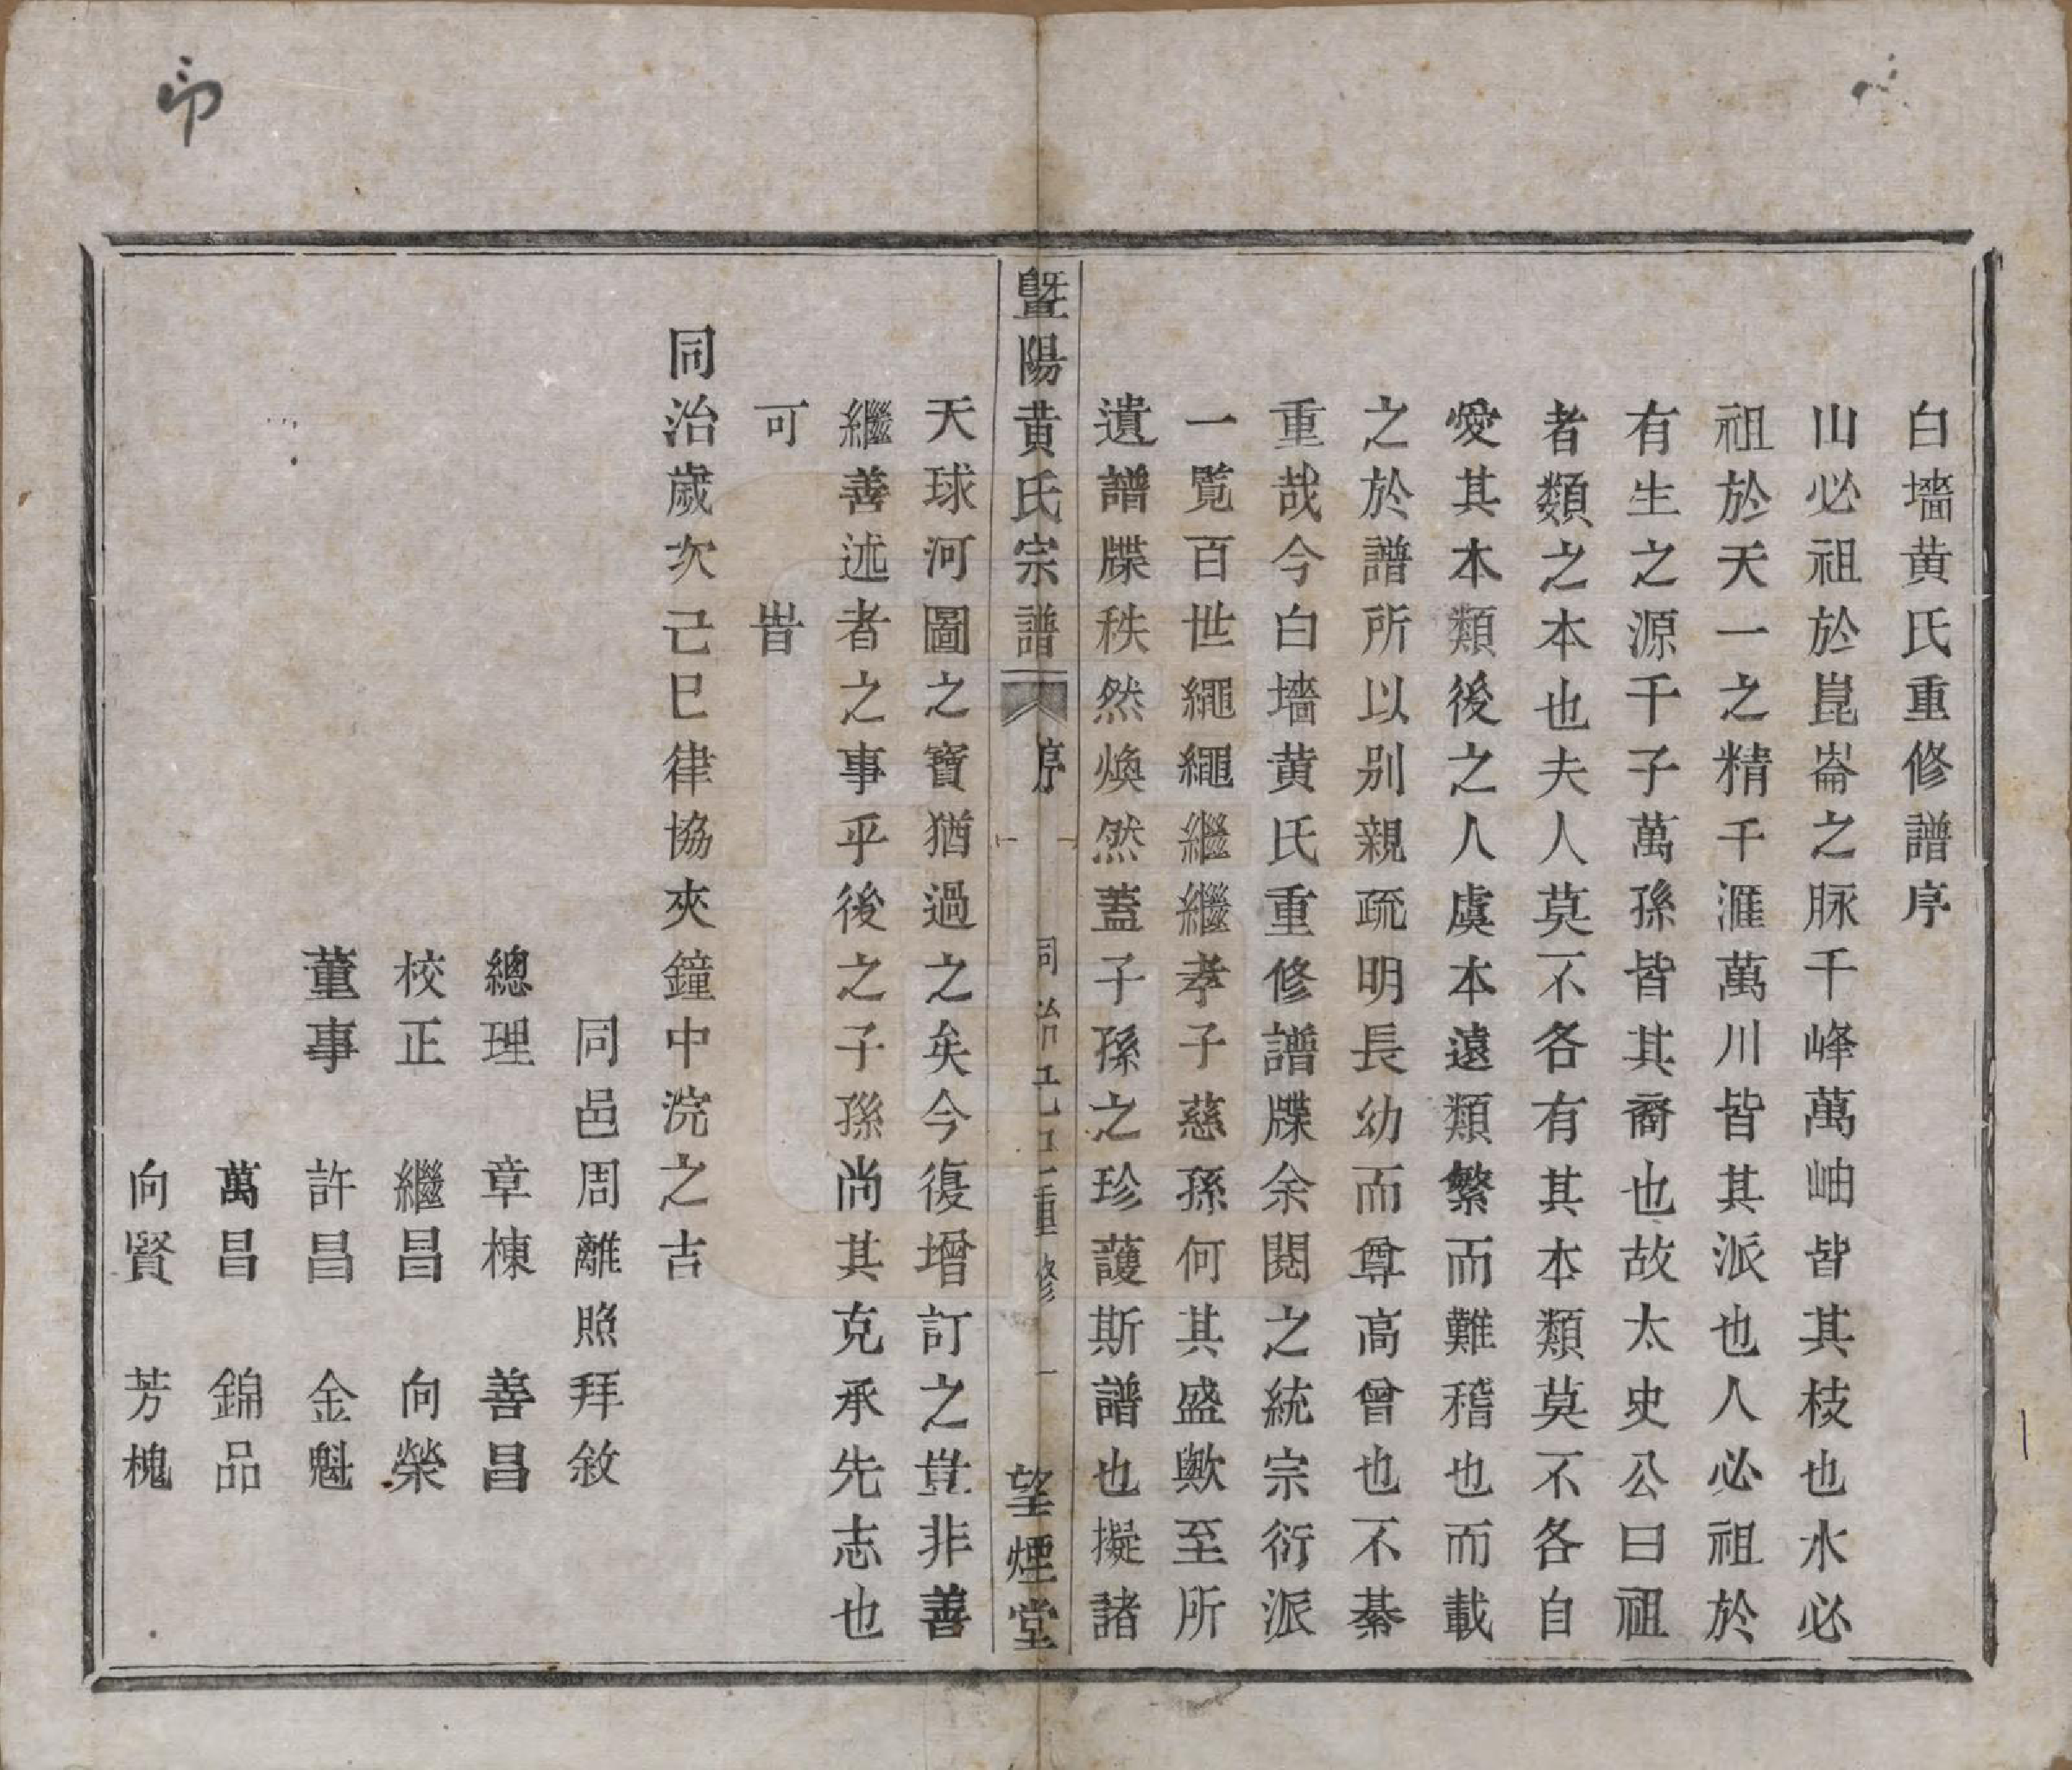 白墻黄氏重修譜序
山必祖於崑崙之脉千峰萬岫皆其枝也水必
祖於天一之精千滙萬川皆其派也人必祖於
有生之源千子萬孫皆其裔也故太史公曰祖
者類之本也夫人莫不各有其本類莫不各自
愛其本類後之人虞本遠類繁而難稽也而載
之於譜所以别親疏明長幼而尊高曾也不綦
重哉今白墻黄氏重修譜牒余閱之統宗衍派
一覧百世繩繩繼繼孝子慈孫何其盛歟至所
遺譜牒秩然煥然蓋子孫之珍護斯譜也擬諸
暨陽黄氏宗譜 序 同治己巳重修 一 望煙堂
天球河圖之寶猶過之矣今復增訂之豈非善
繼善述者之事乎後之子孫尚其克承先志也
可
旹
同治歲次己巳律協夾鐘中浣之吉
同邑周離照拜敘
總理 章棟 善昌
校正 繼昌 向榮
董事 許昌 金魁
萬昌 錦品
向賢 芳槐